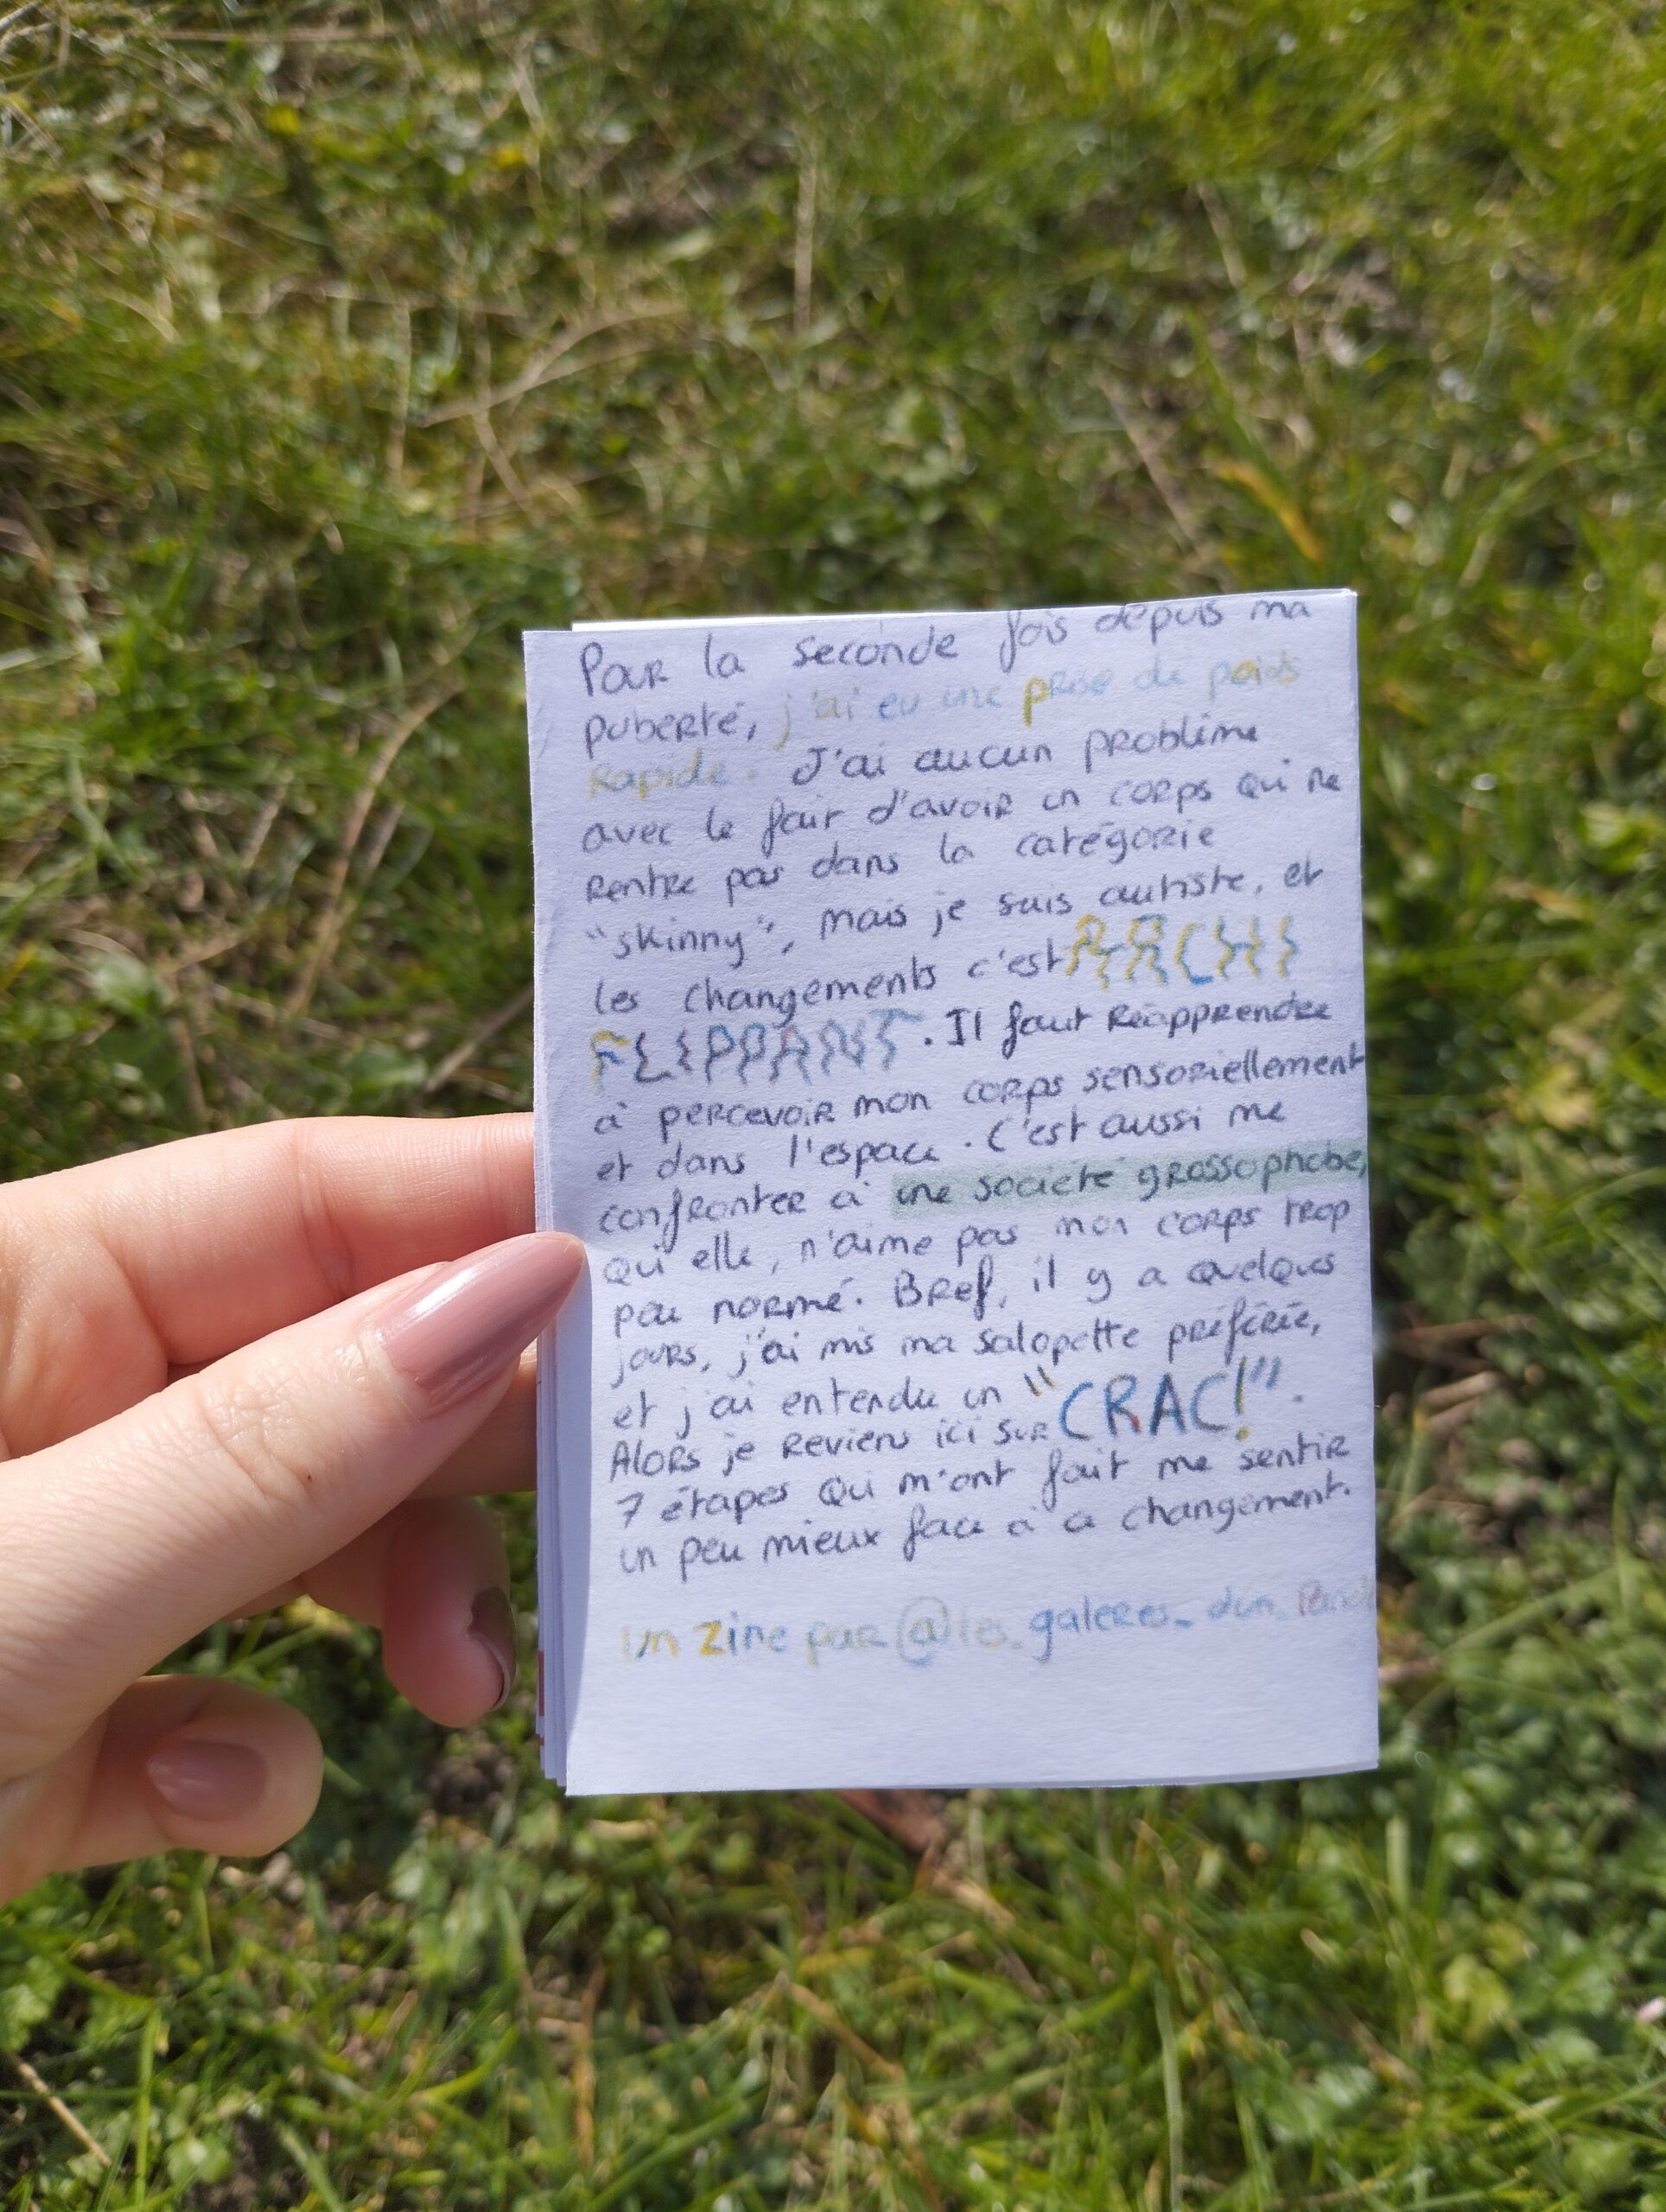 Pour la seconde fois depuis ma
puberté, j'ai eu une prise de poids
rapide. J'ai aucun problème
avec le fait d'avoir un corps qui ne
rentre pas dans la catégorie
"skinny", mais je suis autiste, et
les changements c'est ARCHI
FLIPPANT. Il faut réapprendre
à percevoir mon corps sensoriellement
et dans l'espace. C'est aussi me
confronter à une société grossophobe,
qui elle, n'aime pas mon corps trop
peu normé. Bref, il y a quelques
jours, j'ai mis ma salopette préférée,
et j'ai entendu un "CRAC!".
Alors je reviens ici sur
7 étapes qui m'ont fait me sentir
un peu mieux face à ce changement.
Un zine par @les_galeres_dun_